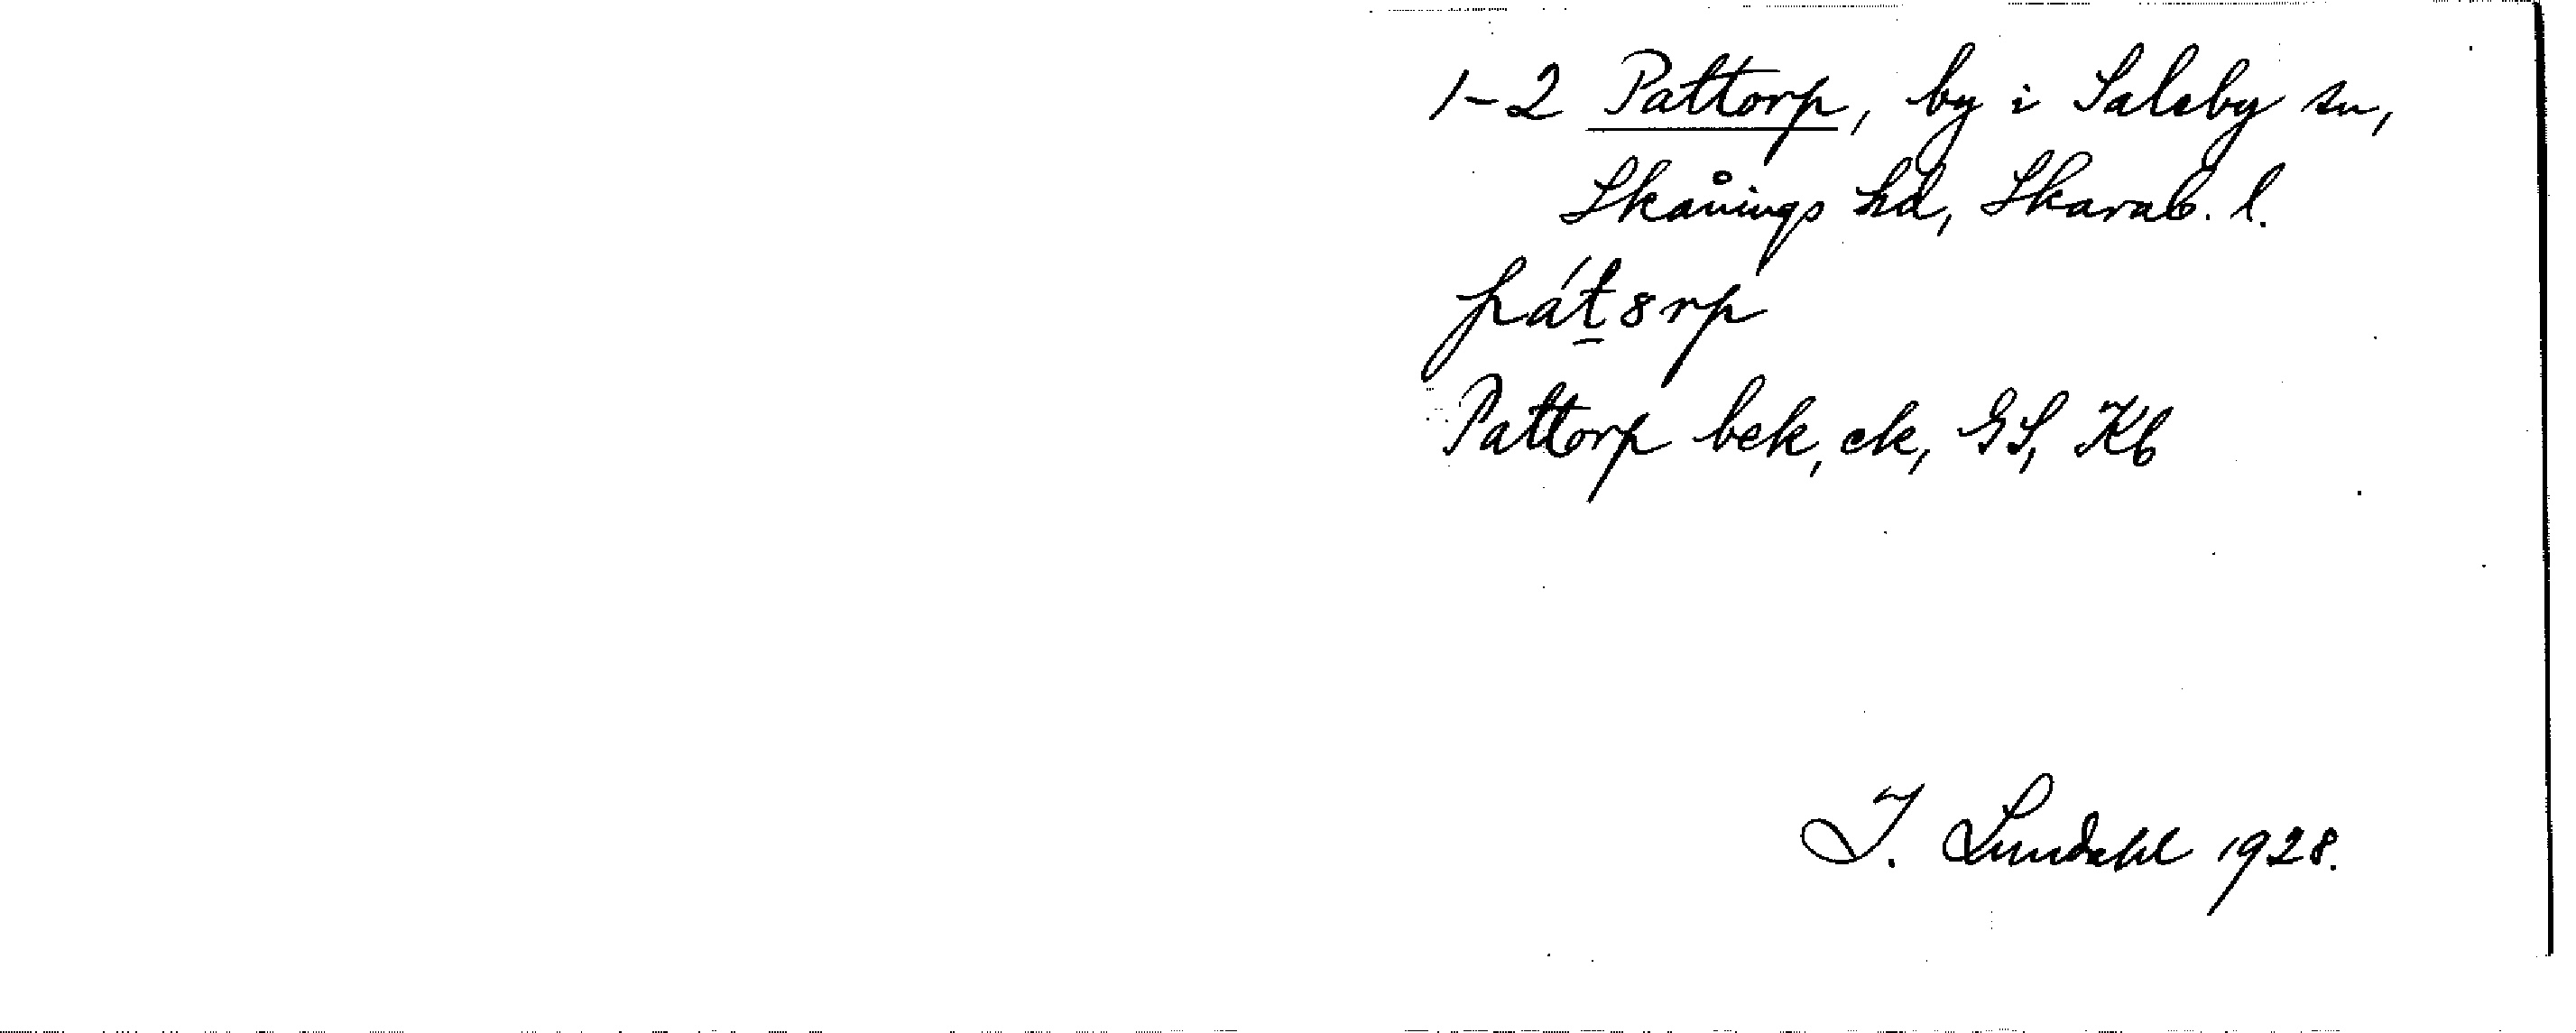 1-2 Pattorp, by i Saleby sn,
Skånings hd, Skarab. l.
pát8rp
Pattorp bek, ek, GS, Kb
I. Lundahl 1928.